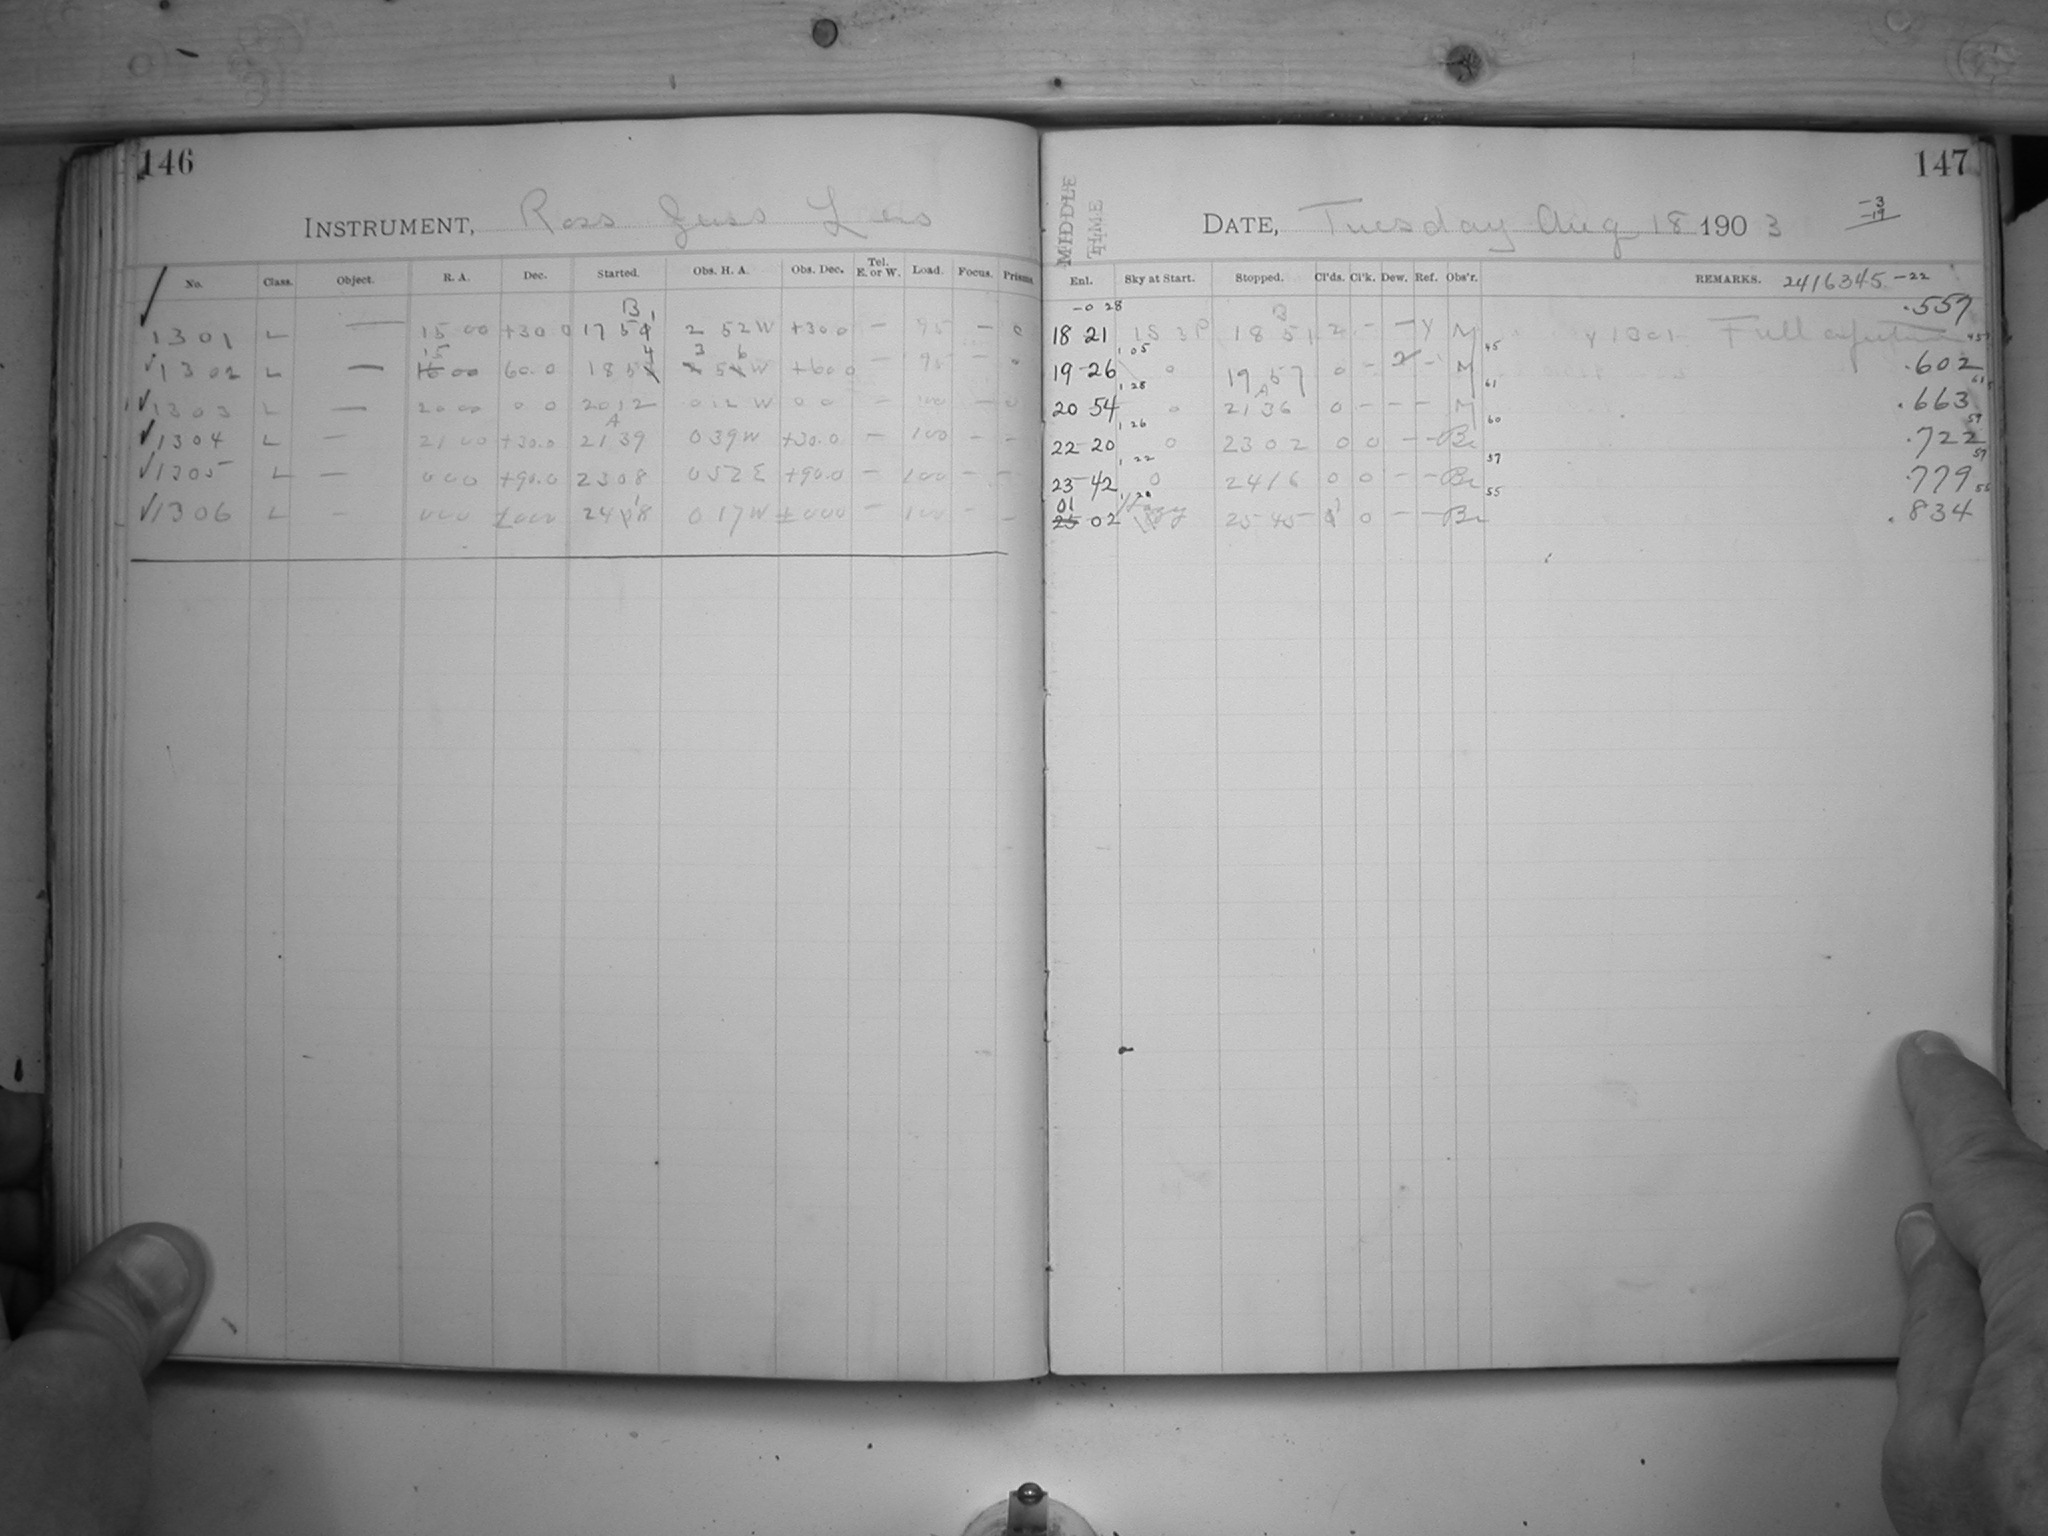 146
INSTRUMENT, Ross
No. Class. Object. R. A. Dec. Started. Obs. H. A. Obs. Dec. Tel. E. or W. Load. Focus. Prisms.
B
1301 L — 15 00 +30 0 17 51 2 52 W +30 0 — 95 — 0
1302 L — 15 00 60.0 18 54 3 56 W +60 0 — 95 — 0
1303 L — 20 00 0 0 20 12 0 12 W 0 0 — 100 — 0
A
1304 L — 21 00 +30.0 21 39 0 39 W +30.0 — 100 — —
1305 L — 0 00 +90.0 23 08 0 52 E +90.0 — 100 — —
1306 L — 0 00 24 18 0 17 W — 100 — —
147
MIDDLE TIME
DATE, Tuesday Aug 18 1903
-3
-19
Enl. Sky at Start. Stopped. Cl'ds. Cl'k. Dew. Ref. Obs'r. REMARKS. 2416345 -22
-0 28 B .557
18 21 18 51 2 — — Y M 45 1301 Full
1 05
19 26 0 19 57 0 — — M .602
1 28 A 61
20 54 0 21 36 0 — — — M .663
1 26 60 59
22 20 0 23 02 0 0 — — Br .722
1 22 57 57
23 42 0 24 16 0 0 — — Br .779
1 20 55 55
01 02 Hazy 25 45 0 — — Br .834